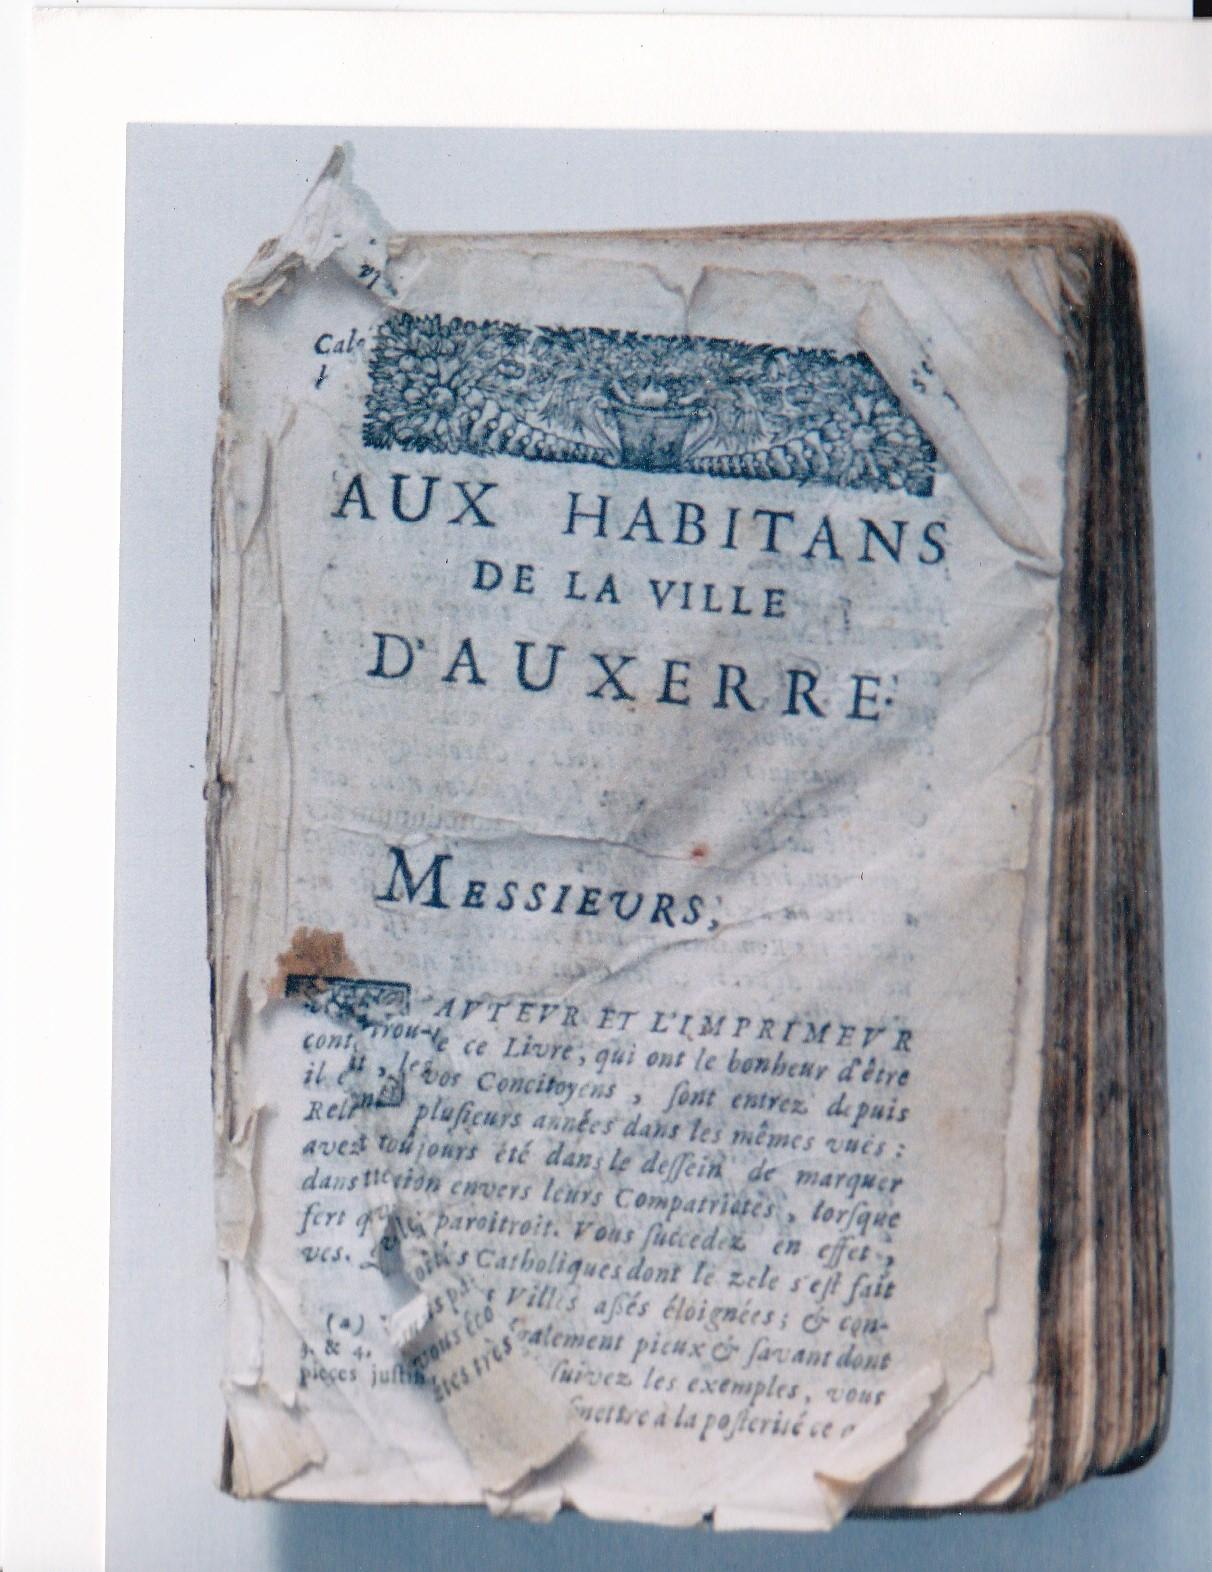 Cal
AUX HABITANS
DE LA VILLE
D'AUXERRE.
MESSIEURS,
AVTEVR ET L'IMPRIMEVR
cont ce Livre, qui ont le bonheur d'être
il vos Concitoyens, sont entrez depuis
plusieurs années dans les mêmes vues:
avez toûjours été dans le dessein de marquer
dans envers leurs Compatriotes, lorsque
fert paroitroit. Vous succedez en effet,
ves. Catholiques dont le zele s'est fait
Villes assés éloignées; & con-
(a) également pieux & savant dont
3. & 4. vous éco
pieces justifi êtes très suivez les exemples, vous
à la posterité ce